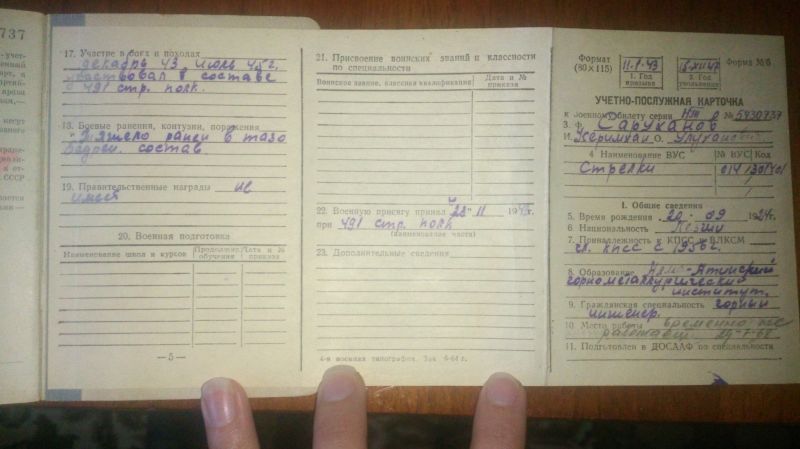 737
17. Участие в боях и походах
декабрь 43, июль 45г.
участвовал в составе
491 стр. полк.
18. Боевые ранения, контузии, поражения
Тяжело ранен в тазо
бедрен. состав.
19. Правительственные награды не
имеет
20. Военная подготовка
Наименование школ и курсов
Продолжит. обучения
Дата и № приказа
— 5 —
21. Присвоение воинских званий и классности
по специальности
Воинское звание, классная квалификация
Дата и № приказа
22. Военную присягу принял „22" 11 194 г.
при 491 стр. полк
(наименование части)
23. Дополнительные сведения
4-я военная типография. Зак. 6-64 г.
Формат
(80×115)
11-I-43
1. Год
призыва
15-XII-47
2. Год
увольнения
Форма № 6
УЧЕТНО-ПОСЛУЖНАЯ КАРТОЧКА
к военному билету серии НТ № 5930737
3. Ф. Саруханов
И. Керимхан О. Улуханович
4 Наименование ВУС
№ ВУС
Код
Стрелки
014
1301401
I. Общие сведения
5. Время рождения 20. 09 1924г.
6. Национальность Лезгин
7. Принадлежность к КПСС и ВЛКСМ
чл. КПСС с 1956г.
8. Образование Алма-Атинский
горнометаллургический
институт.
9. Гражданская специальность горный
инженер.
10 Место работы временно не
работает
11. Подготовлен в ДОСААФ по специальности